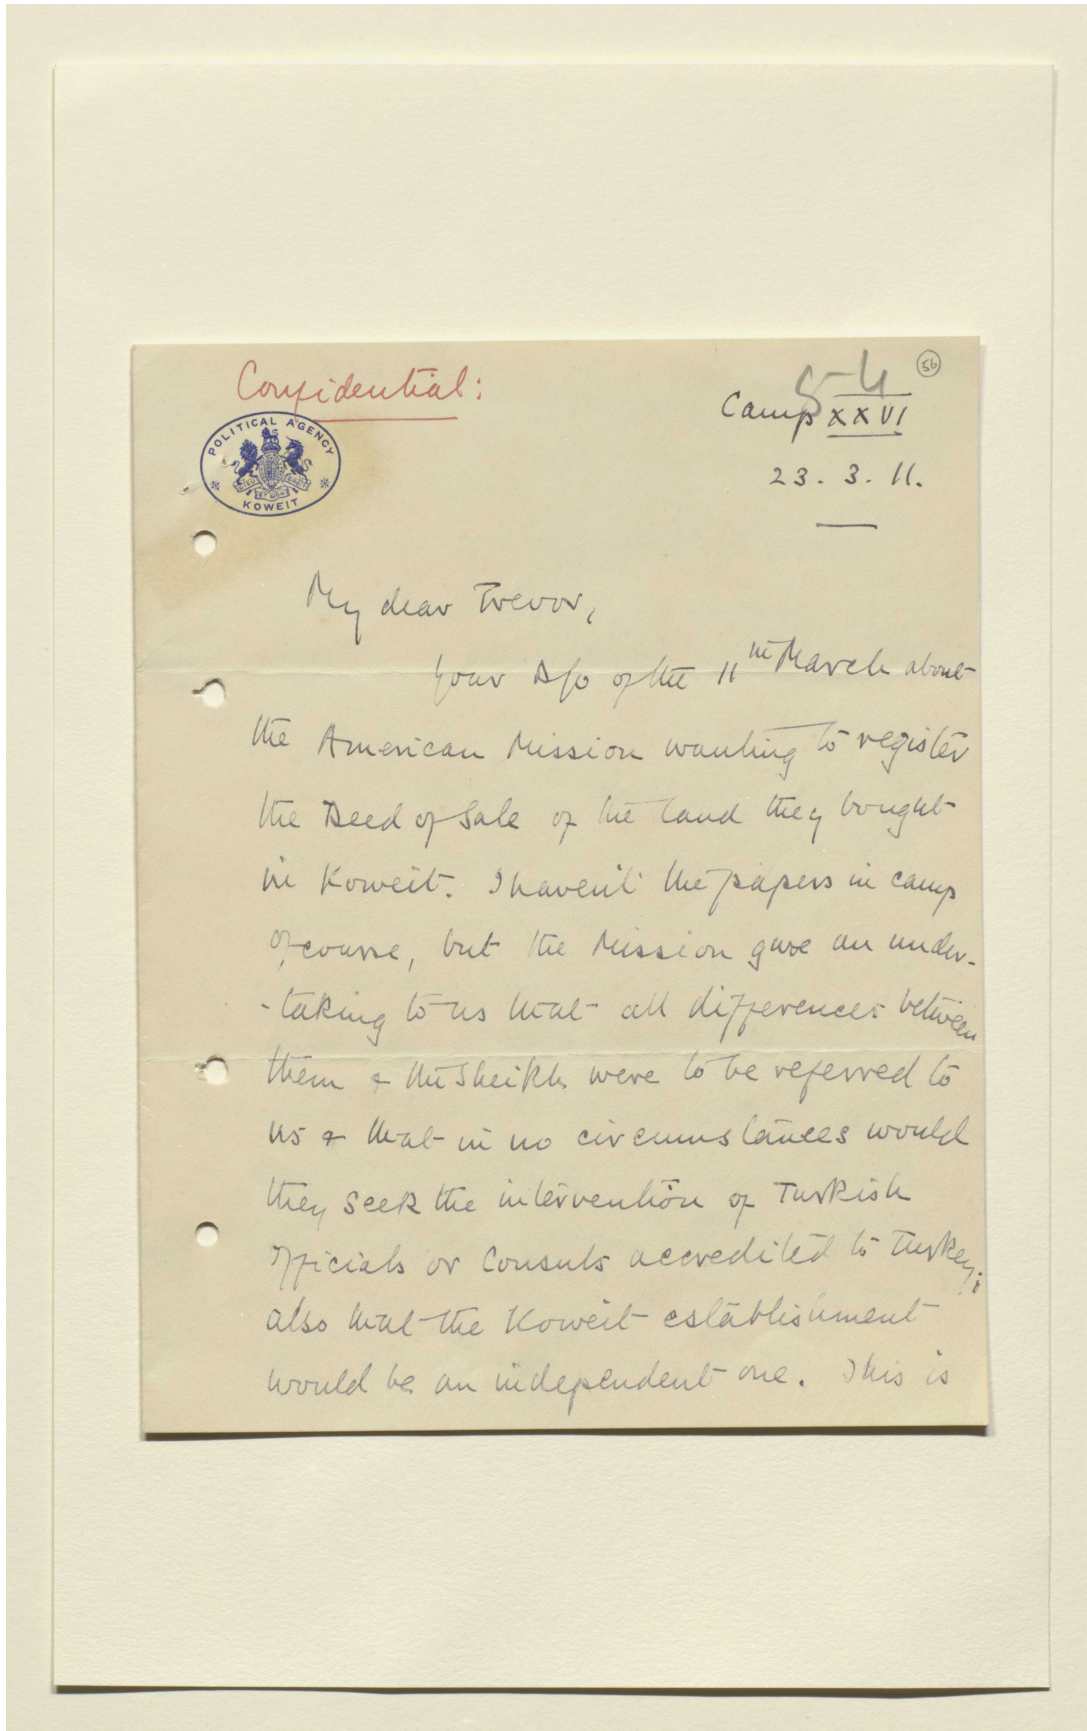 Confidential:
54
56
Camp XXVI
23. 3. 11.
POLITICAL AGENCY
DIEU ET MON DROIT
KOWEIT
My dear Trevor,
Your D/o of the 11th March about
the American Mission wanting to register
the Deed of Sale of the land they bought
in Koweit. I haven't the papers in camp
of course, but the Mission gave an under-
-taking to us that all differences between
them & the Sheikh were to be referred to
us & that in no circumstances would
they seek the intervention of Turkish
officials or Consuls accredited to Turkey;
also that the Koweit establishment
would be an independent one. This is